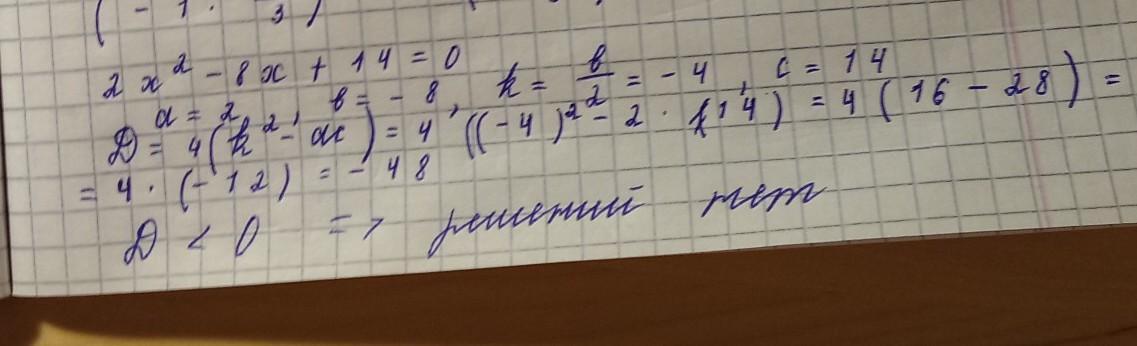 ( - 1 . 3 )
2x² - 8x + 14 = 0
a = 2, b = - 8, k = b/2 = - 4, c = 14
D = 4(k² - ac) = 4((-4)² - 2 · 14) = 4(16 - 28) =
= 4 · (-12) = - 48
D < 0 => решений нет